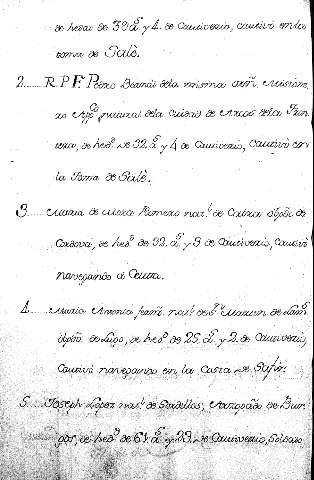 de hedad de 30 a.s y 4. de Cautiverio, cautivó en la
toma de Salè.
2...... R. P. F. Pedro de la misma orñ, Misiona
rio App.co natural de la ciudad de Arcos de la Fron
tera, de hed.d de 32 a.s y 4 de Cautiverio, Cautivó en
la Toma de Salè.
3...... Maria de Mora Romero nat.l de Cabra obpdo. de
Cordova, de hed.d de 32. a.s y 3 de Cautiverio, Cautivó
navegando á Ceuta.
4...... Mario Antonio nat.l de S.n de
obpdo. de Lugo, de hed.d de 25. a.s y 2. de Cautiverio,
Cautivó navegando en la Costa de
5...... Joseph Lopez nat.l de Arzopdo de Bur
gos, de hed.d de 61. a.s y 29. de Cautiverio, Soldado